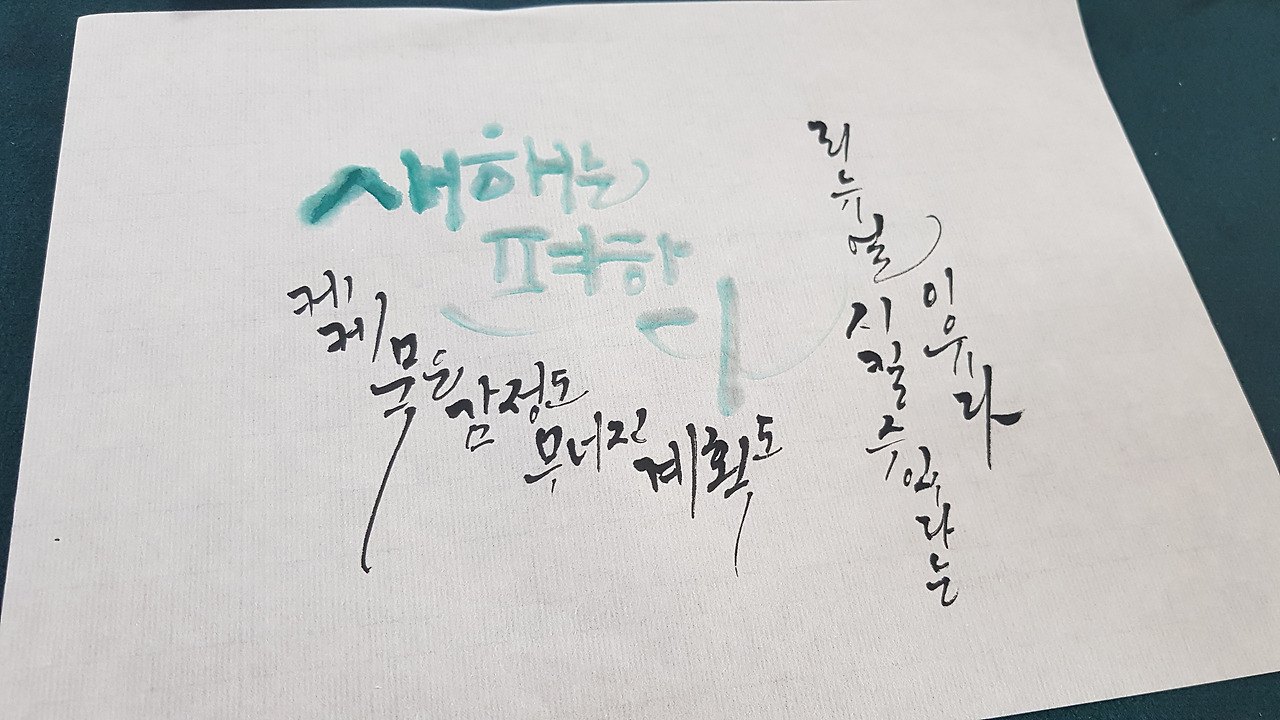 새해는
편하
다
케케묵은 감정도
무너진 계획도
리뉴얼
시킬 수 있다는
이유라